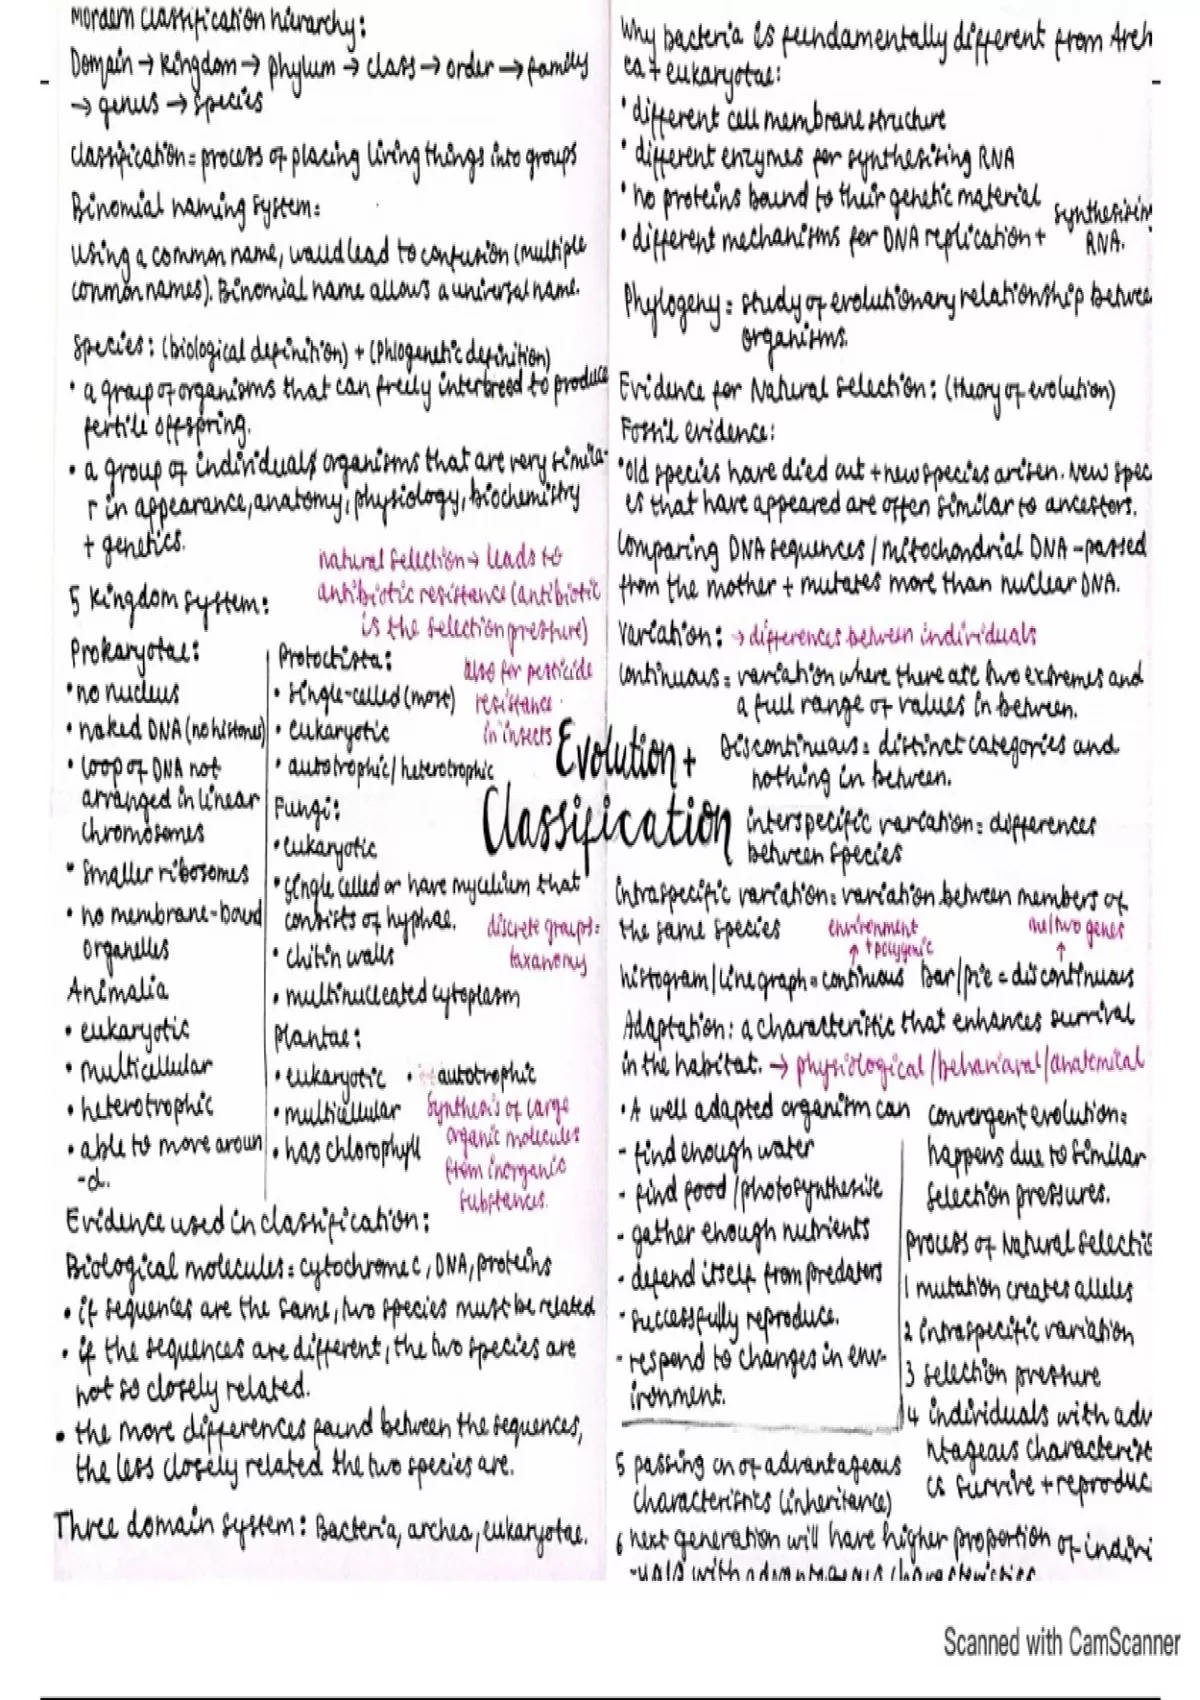 Mordern classification hierarchy:
Domain → kingdom → phylum → class → order → family
→ genus → species
Classification = process of placing living things into groups
Binomial naming system:
Using a common name, would lead to confusion (multiple
common names). Binomial name allows a universal name.
Species: (biological definition) + (Phlogenetic definition)
• a group of organisms that can freely interbreed to produce
fertile offspring.
• a group of individuals organisms that are very simila-
r in appearance, anatomy, physiology, biochemistry
+ genetics.
natural selection → leads to
antibiotic resistance (antibiotic
is the selection pressure)
also for pesticide
resistance
in insects
5 Kingdom system:
Prokaryotae:
• no nucleus
• naked DNA (no histones)
• loop of DNA not
arranged in linear
chromosomes
• smaller ribosomes
• no membrane-bound
organelles
Animalia
• eukaryotic
• multicellular
• heterotrophic
• able to move aroun
-d.
Protoctista:
• single-celled (most)
• eukaryotic
• autotrophic/heterotrophic
Fungi:
• eukaryotic
• single celled or have mycelium that
consists of hyphae.
• chitin walls
• multinucleated cytoplasm
discrete groups =
taxanomy
Plantae:
• eukaryotic • autotrophic
• multicellular
• has chlorophyll
synthesis of large
organic molecules
from inorganic
substances.
Evidence used in classification:
Biological molecules = cytochrome c, DNA, proteins
• if sequences are the same, two species must be related
• if the sequences are different, the two species are
not so closely related.
• the more differences found between the sequences,
the less closely related the two species are.
Three domain system: Bacteria, archea, eukaryotae.
Evolution +
Classification
Why bacteria is fundamentally different from Arch
ea + eukaryotae:
• different cell membrane structure
• different enzymes for synthesising RNA
• no proteins bound to their genetic material
• different mechanisms for DNA replication + synthesisin
RNA.
Phylogeny = study of evolutionary relationship betwee
organisms.
Evidence for Natural selection: (theory of evolution)
Fossil evidence:
• Old species have died out + new species arisen. New spec
es that have appeared are often similar to ancestors.
Comparing DNA sequences/mitochondrial DNA - passed
from the mother + mutates more than nuclear DNA.
Variation: → differences between individuals
Continuous = variation where there are two extremes and
a full range of values in between.
Discontinuous = distinct categories and
nothing in between.
interspecific variation = differences
between species
Intraspecific variation = variation between members of
the same species
environment
+ polygenic
one/two genes
histogram/line graph = continuous bar/pie = discontinuous
Adaptation: a characteristic that enhances survival
in the habitat. → physiological/behavioural/anatomical
• A well adapted organism can
- find enough water
- find food/photosynthesise
- gather enough nutrients
- defend itself from predators
- successfully reproduce.
- respond to changes in env-
ironment.
convergent evolution =
happens due to similar
selection pressures.
Process of Natural selectio
1 mutation creates alleles
2 intraspecific variation
3 selection pressure
4 individuals with adv
ntageous characterist
cs survive + reproduc
5 passing on of advantageous
characteristics (inheritance)
6 next generation will have higher proportion of indivi
-uals with advantageous characteristics
Scanned with CamScanner